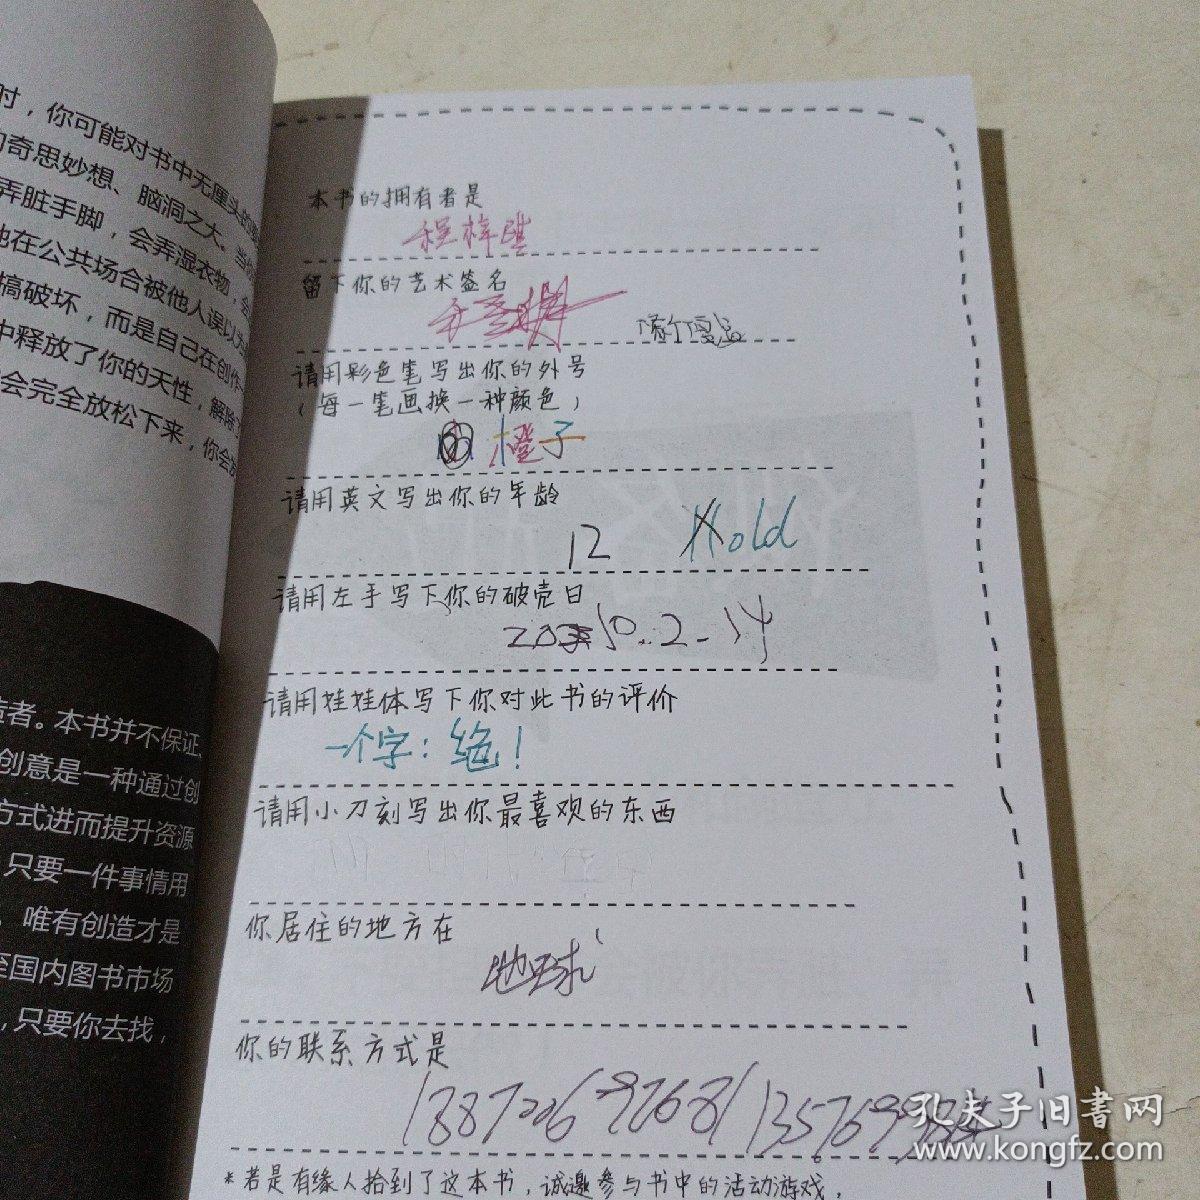 时，你可能对书中无厘头的
奇思妙想、脑洞之大。当
弄脏手脚，会弄湿衣物，会
在公共场合被他人误以为
搞破坏，而是自己在创作
中释放了你的天性，解除
会完全放松下来，你会
者。本书并不保证
创意是一种通过创
方式进而提升资源
只要一件事情用
唯有创造才是
至国内图书市场
，只要你去找，
本书的拥有者是
程梓
留下你的艺术签名
请用彩色笔写出你的外号
（每一笔画换一种颜色）
橙子
请用英文写出你的年龄
12 old
请用左手写下你的破壳日
请用娃娃体写下你对此书的评价
一个字：绝！
请用小刀刻写出你最喜欢的东西
你居住的地方在
地球
你的联系方式是
*若是有缘人拾到了这本书，诚邀参与书中的活动游戏，
孔夫子旧书网
www.kongfz.com